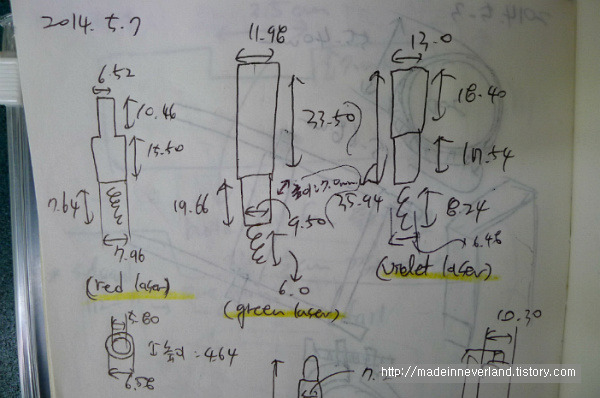 2014. 5. 7
6.52
10.46
15.50
7.64
7.96
(red laser)
11.98
33.50
19.66
9.50
6.0
(green laser)
13.0
18.40
17.54
35.94
8.24
6.48
(violet laser)
5.80
6.58
= 4.64
10.30
http://madeinneverland.tistory.com